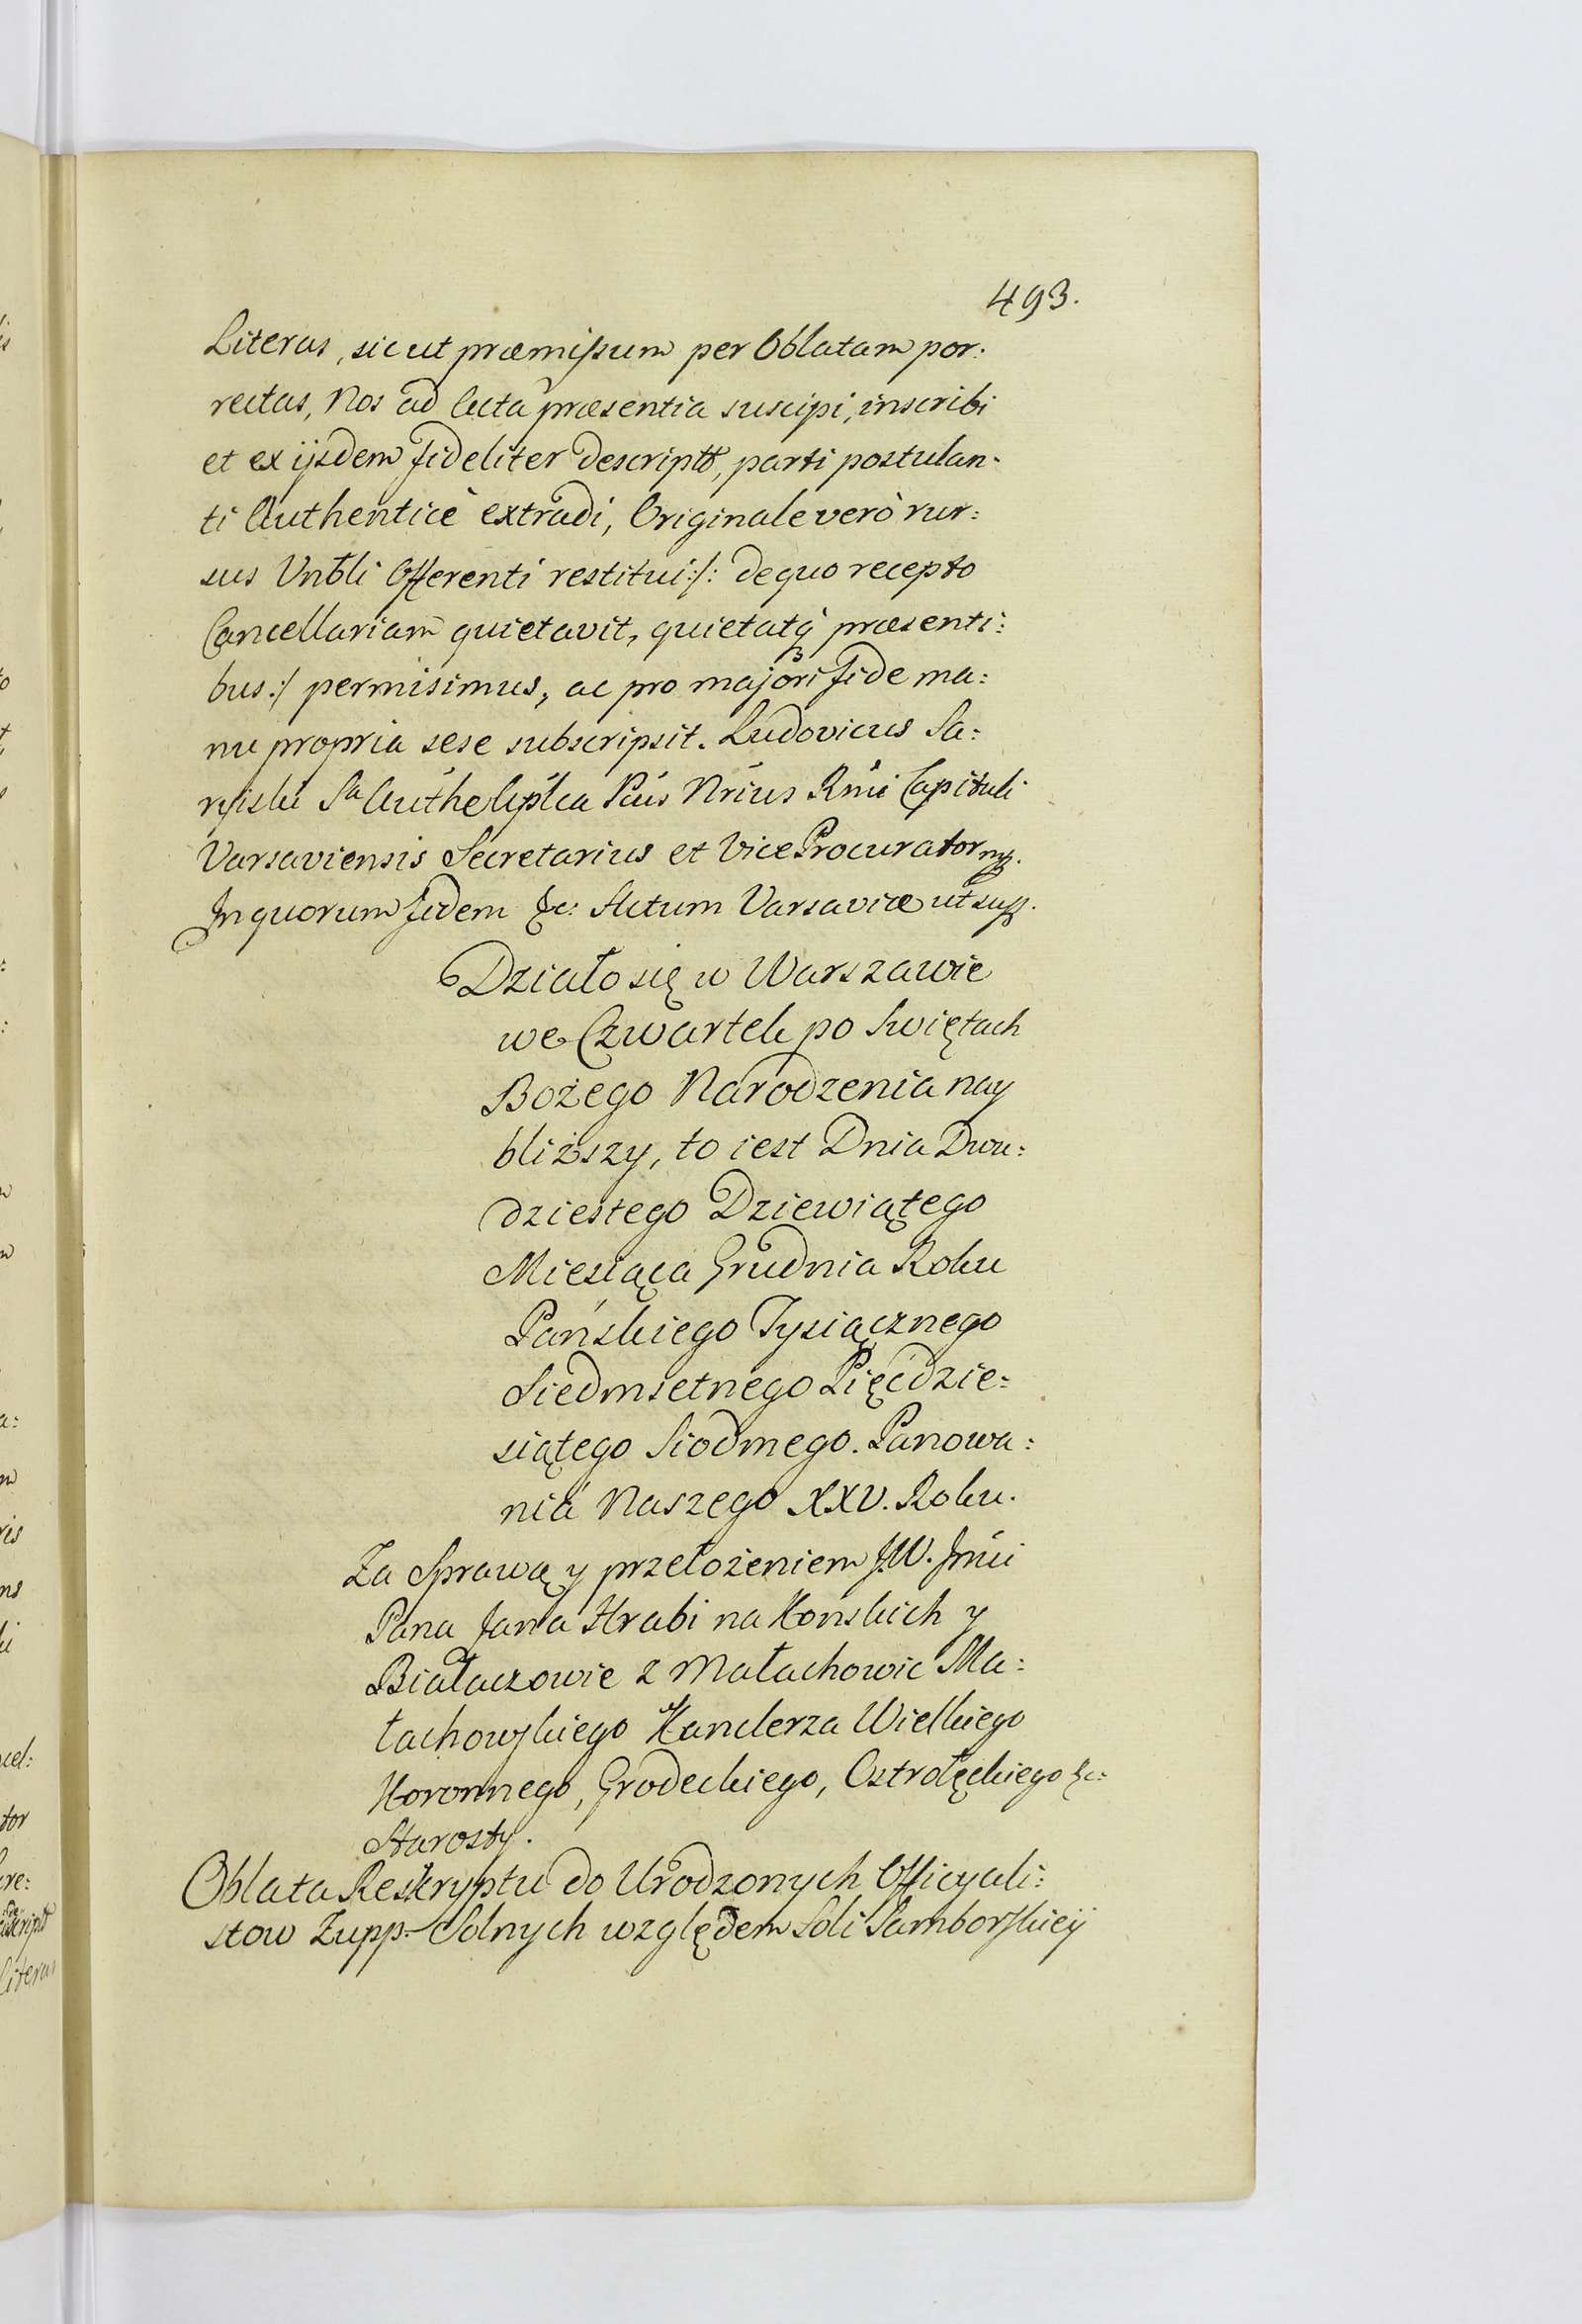 493.
Literas, sicut præmissum per Oblatam por:
rectas, Nos ad Acta præsentia suscipi, inscribi
et ex ijsdem fideliter descriptt, parti postulan:
ti Authenticè extradi, Originale verò rur:
sus Vnbli Offerenti restitui:/: de quo recepto
Cancellariam quietavit, quietatq́ præsenti:
bus:/ permisimus, ac pro majori fide ma:
nu propria sese subscripsit. Ludovicus
Sa Authe Aplica Pcus Nrius Rmi Capituli
Varsaviensis Secretarius et Vice Procurator mp.
In quorum fidem &c: Actum Varsaviæ ut supp.
Działo się w Warszawie
we Czwartek po Swiętach
Bożego Narodzenia nay
bliższy, to iest Dnia Dwu:
dziestego Dziewiątego
Miesiąca Grudnia Roku
Pańskiego Tysiącznego
Siedmsetnego Pięćdzie:
siątego Siodmego. Panowa:
nia Naszego XXV. Roku.
Za Sprawą y przełożeniem J.W. Jmći
Pana Jana Hrabi na Konskich y
Białaczowie z Małachowic Ma:
łachowskiego Kanclerza Wielkiego
Koronnego, Grodeckiego, Ostrołęckiego &c:
Starosty.
Oblata Reskryptu do Urodzonych Officyali:
stow Zupp. Solnych względem Soli Samborskiey